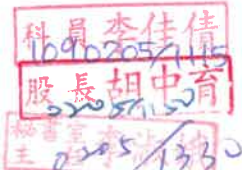 科員 李佳倩
1090205/1115
股長 胡中育
0205/1150
秘書室
主
0205/1330